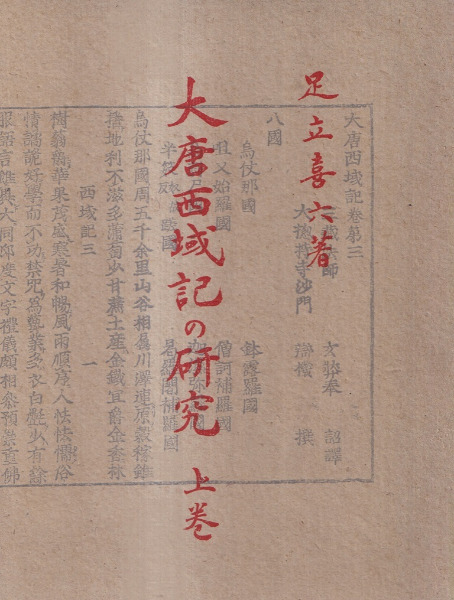 足立喜六著
大唐西域記の研究
上巻
大唐西域記卷第三
三藏法師
文弉奉
詔譯
大摠持寺沙門
辯機
撰
八國
烏仗那國
鉢露羅國
呾叉始羅國
僧訶補羅國
烏仗那國周五千余里山谷相屬川澤連原穀稼雖
播地利不滋多蒲萄少甘蔗土産金鐵宜鬱金香林
西域記三
一
樹蓊鬱華果茂盛寒暑和暢風雨順序人怯懦俗
情譎詭好學而不功禁呪爲藝業多衣白㲲少有餘
服語言雖異大同印度文字禮儀頗相參預崇重佛